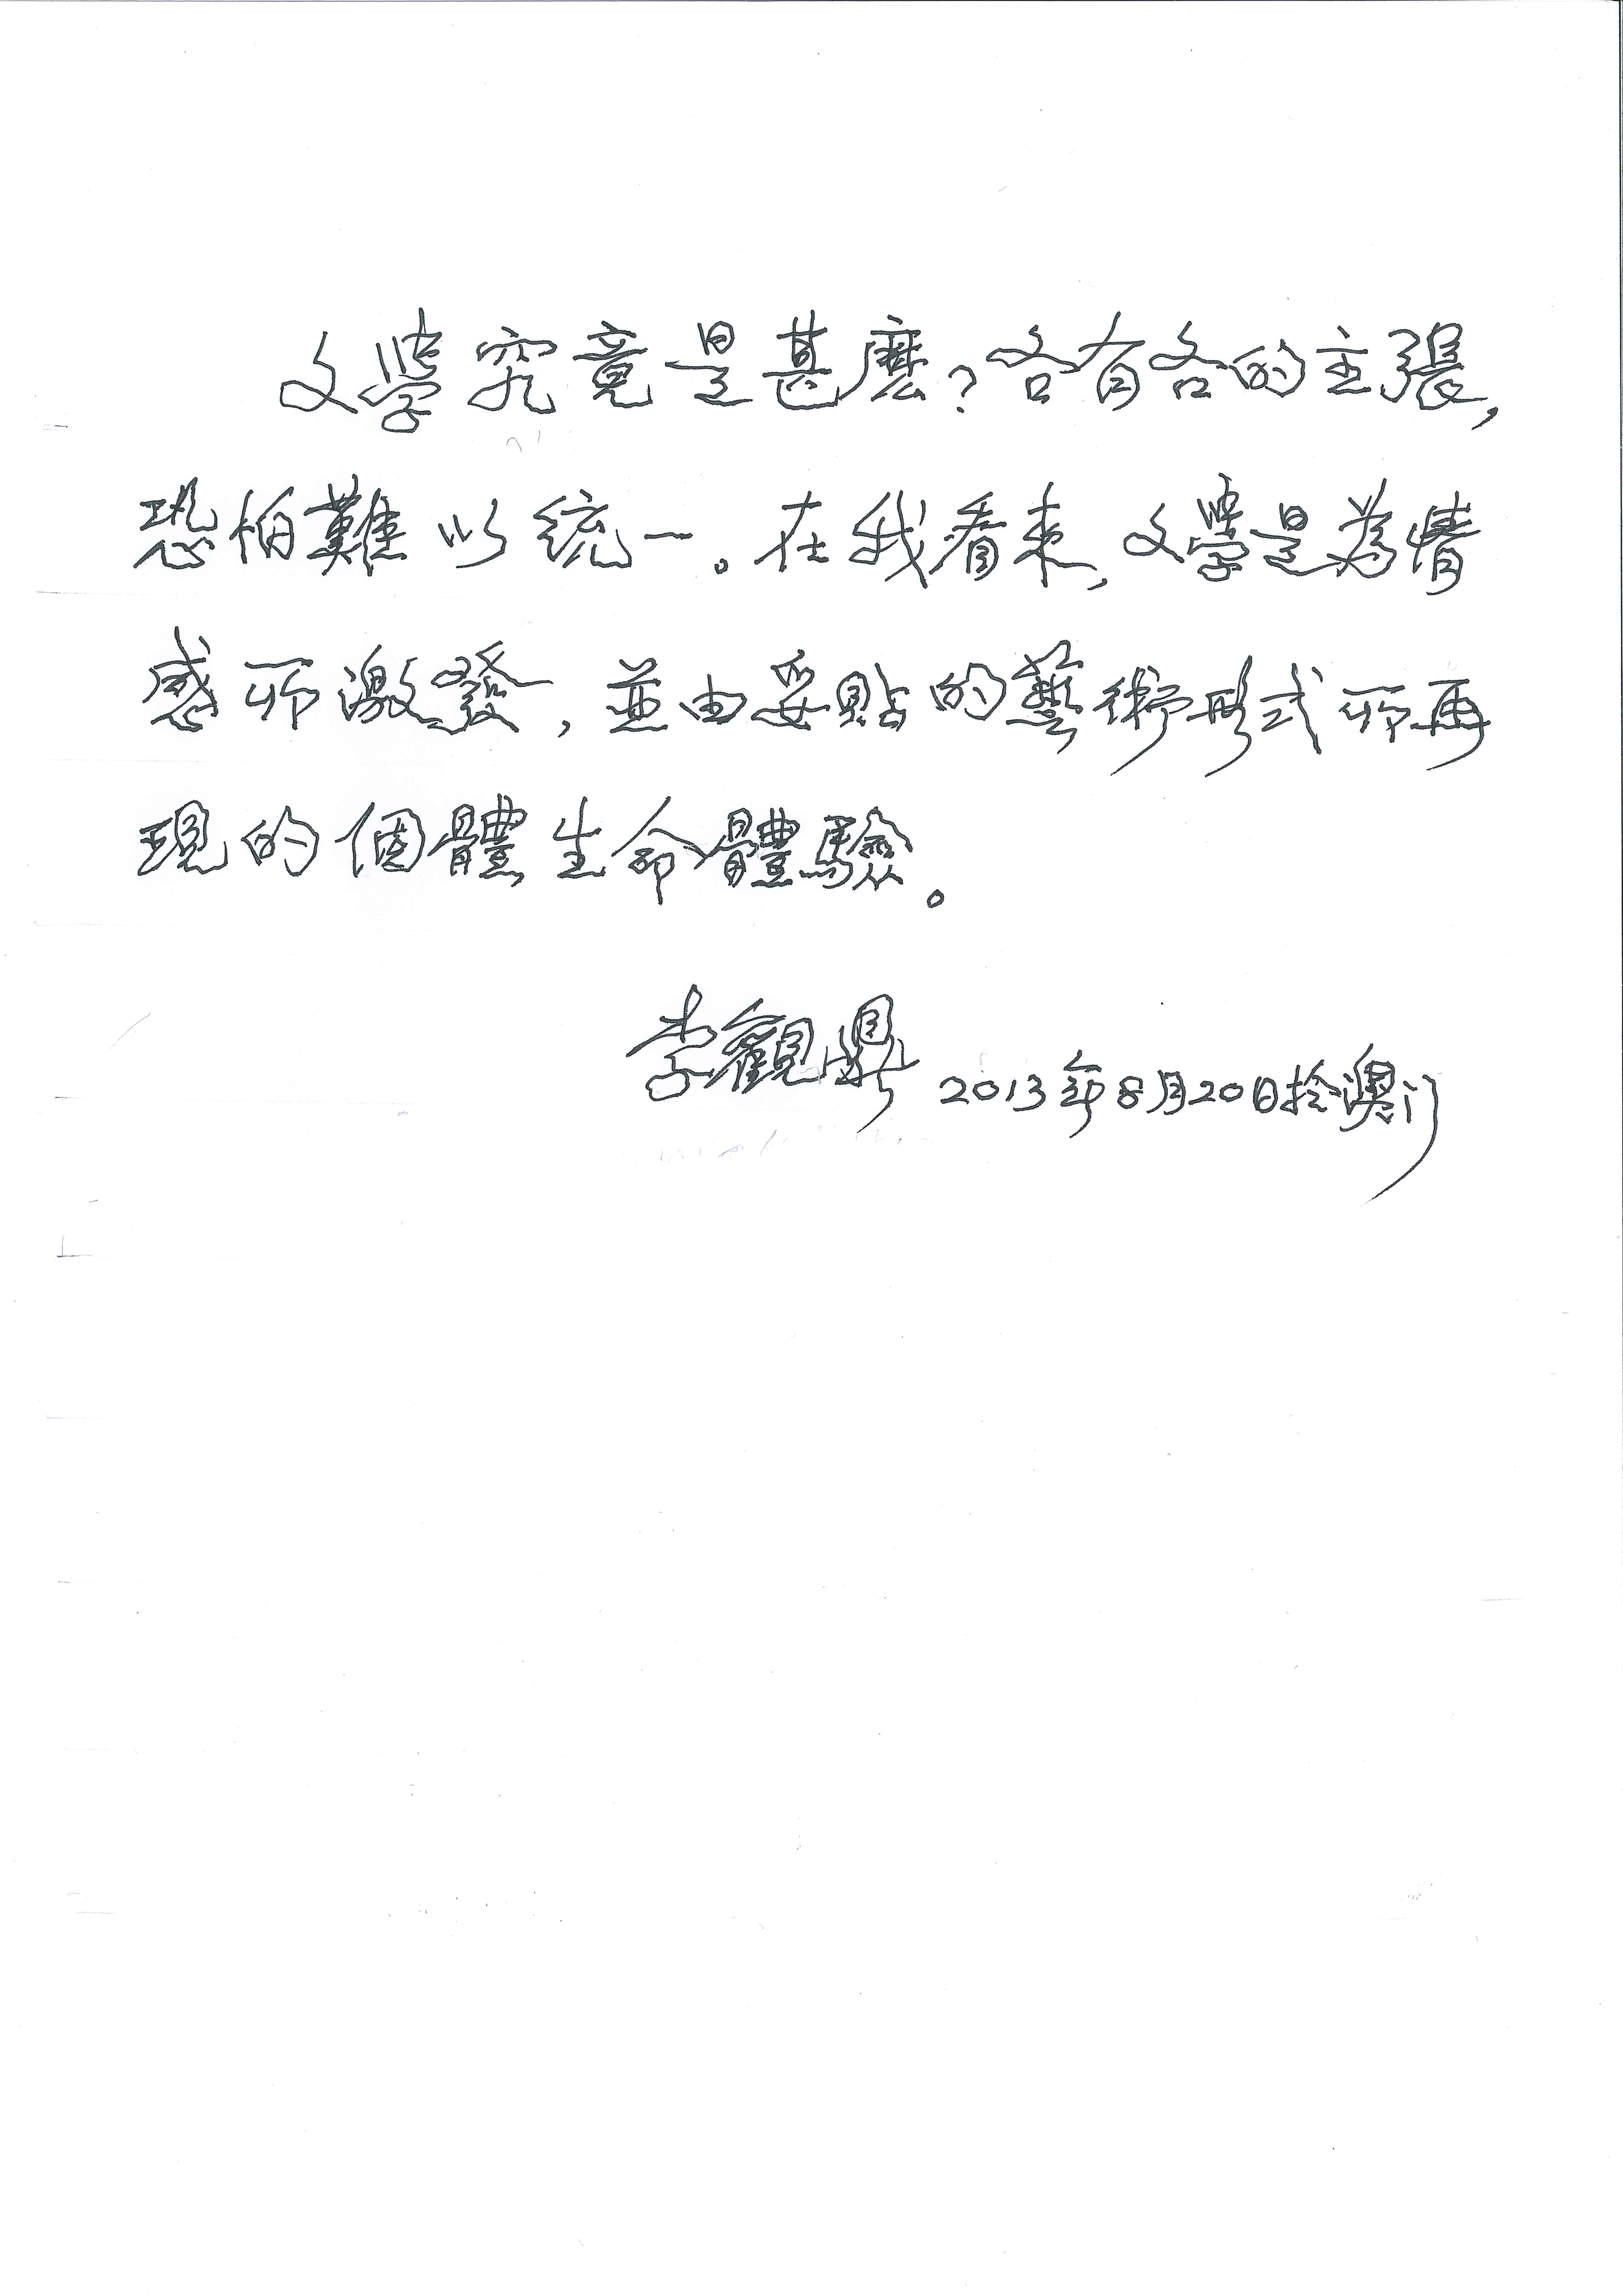 文學究竟是甚麼？各有各的主張，
恐怕難以統一。在我看來，文學是為情
感所激發，並由妥貼的藝術形式所再
現的個體生命體驗。
李觀鼎 2013年8月20日於澳门